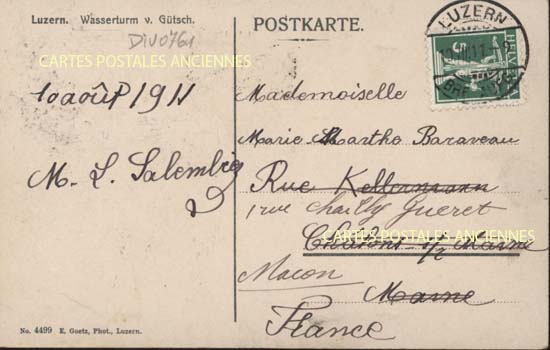 Luzern. Wasserturm v. Gütsch.
DIV0761
CARTES POSTALES ANCIENNES
10 août 1911
M. L. Salembier
No. 4499 E. Goetz, Phot., Luzern.
POSTKARTE.
LUZERN
HELVETIA
5
Mademoiselle
Marie Martho Baraveau
Rue Kellermann
1 rue Chailly Gueret
Châlons s/ Marne
CARTES POSTALES ANCIENNES
Macon
Marne
France